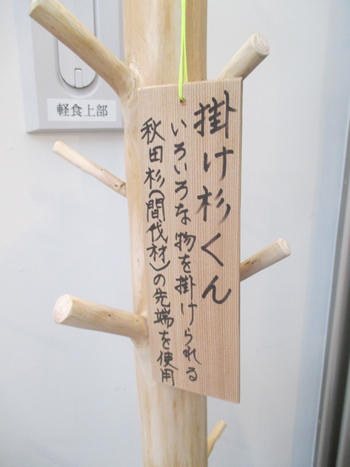 掛け杉くん
いろいろな物を掛けられる
秋田杉(間伐材)の先端を使用
軽食上部